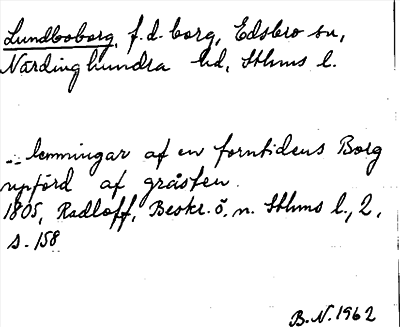 Lundboborg, f.d. borg, Edsbro sn,
Närdinghundra hd, Sthms l.
... lemningar af en forntidens Borg
uppförd af gråsten.
1805, Radloff, Beskr. ö. n. Sthms l., 2,
s. 158
B.N. 1962